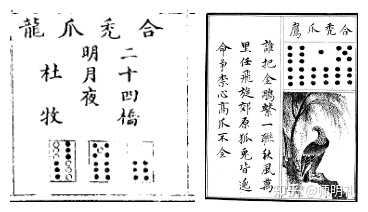 合禿爪龍
二十四橋
明月夜
杜牧
合禿爪鷹
誰把金鵰繫一聯秋風萬
里任飛旋郊原狐兔皆逃
命爭柰心高爪不全
知乎